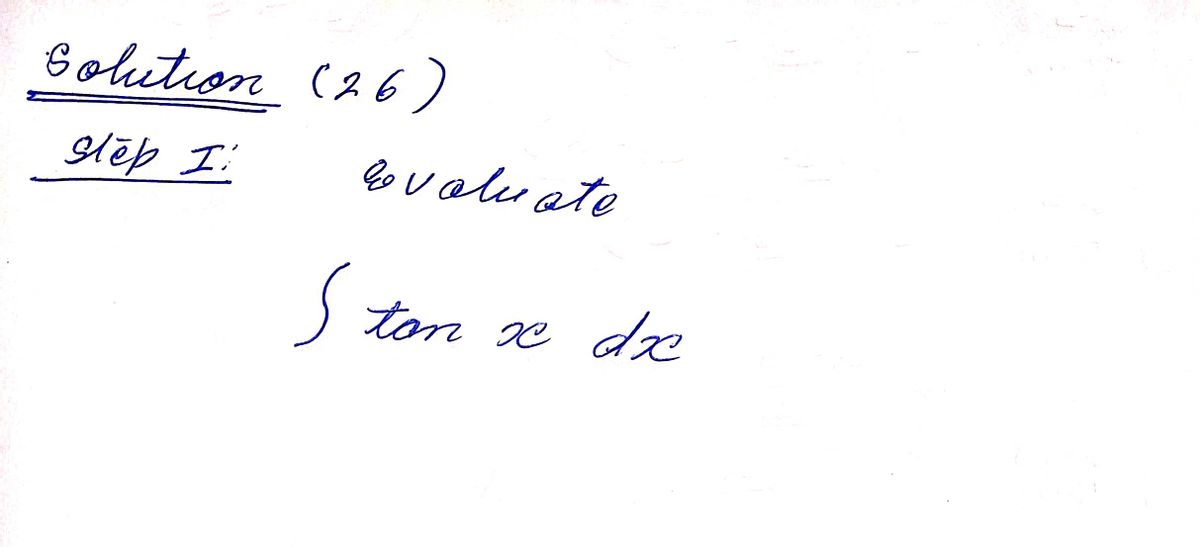 Solution (26)
Step I:
Evaluate
∫ tan x dx